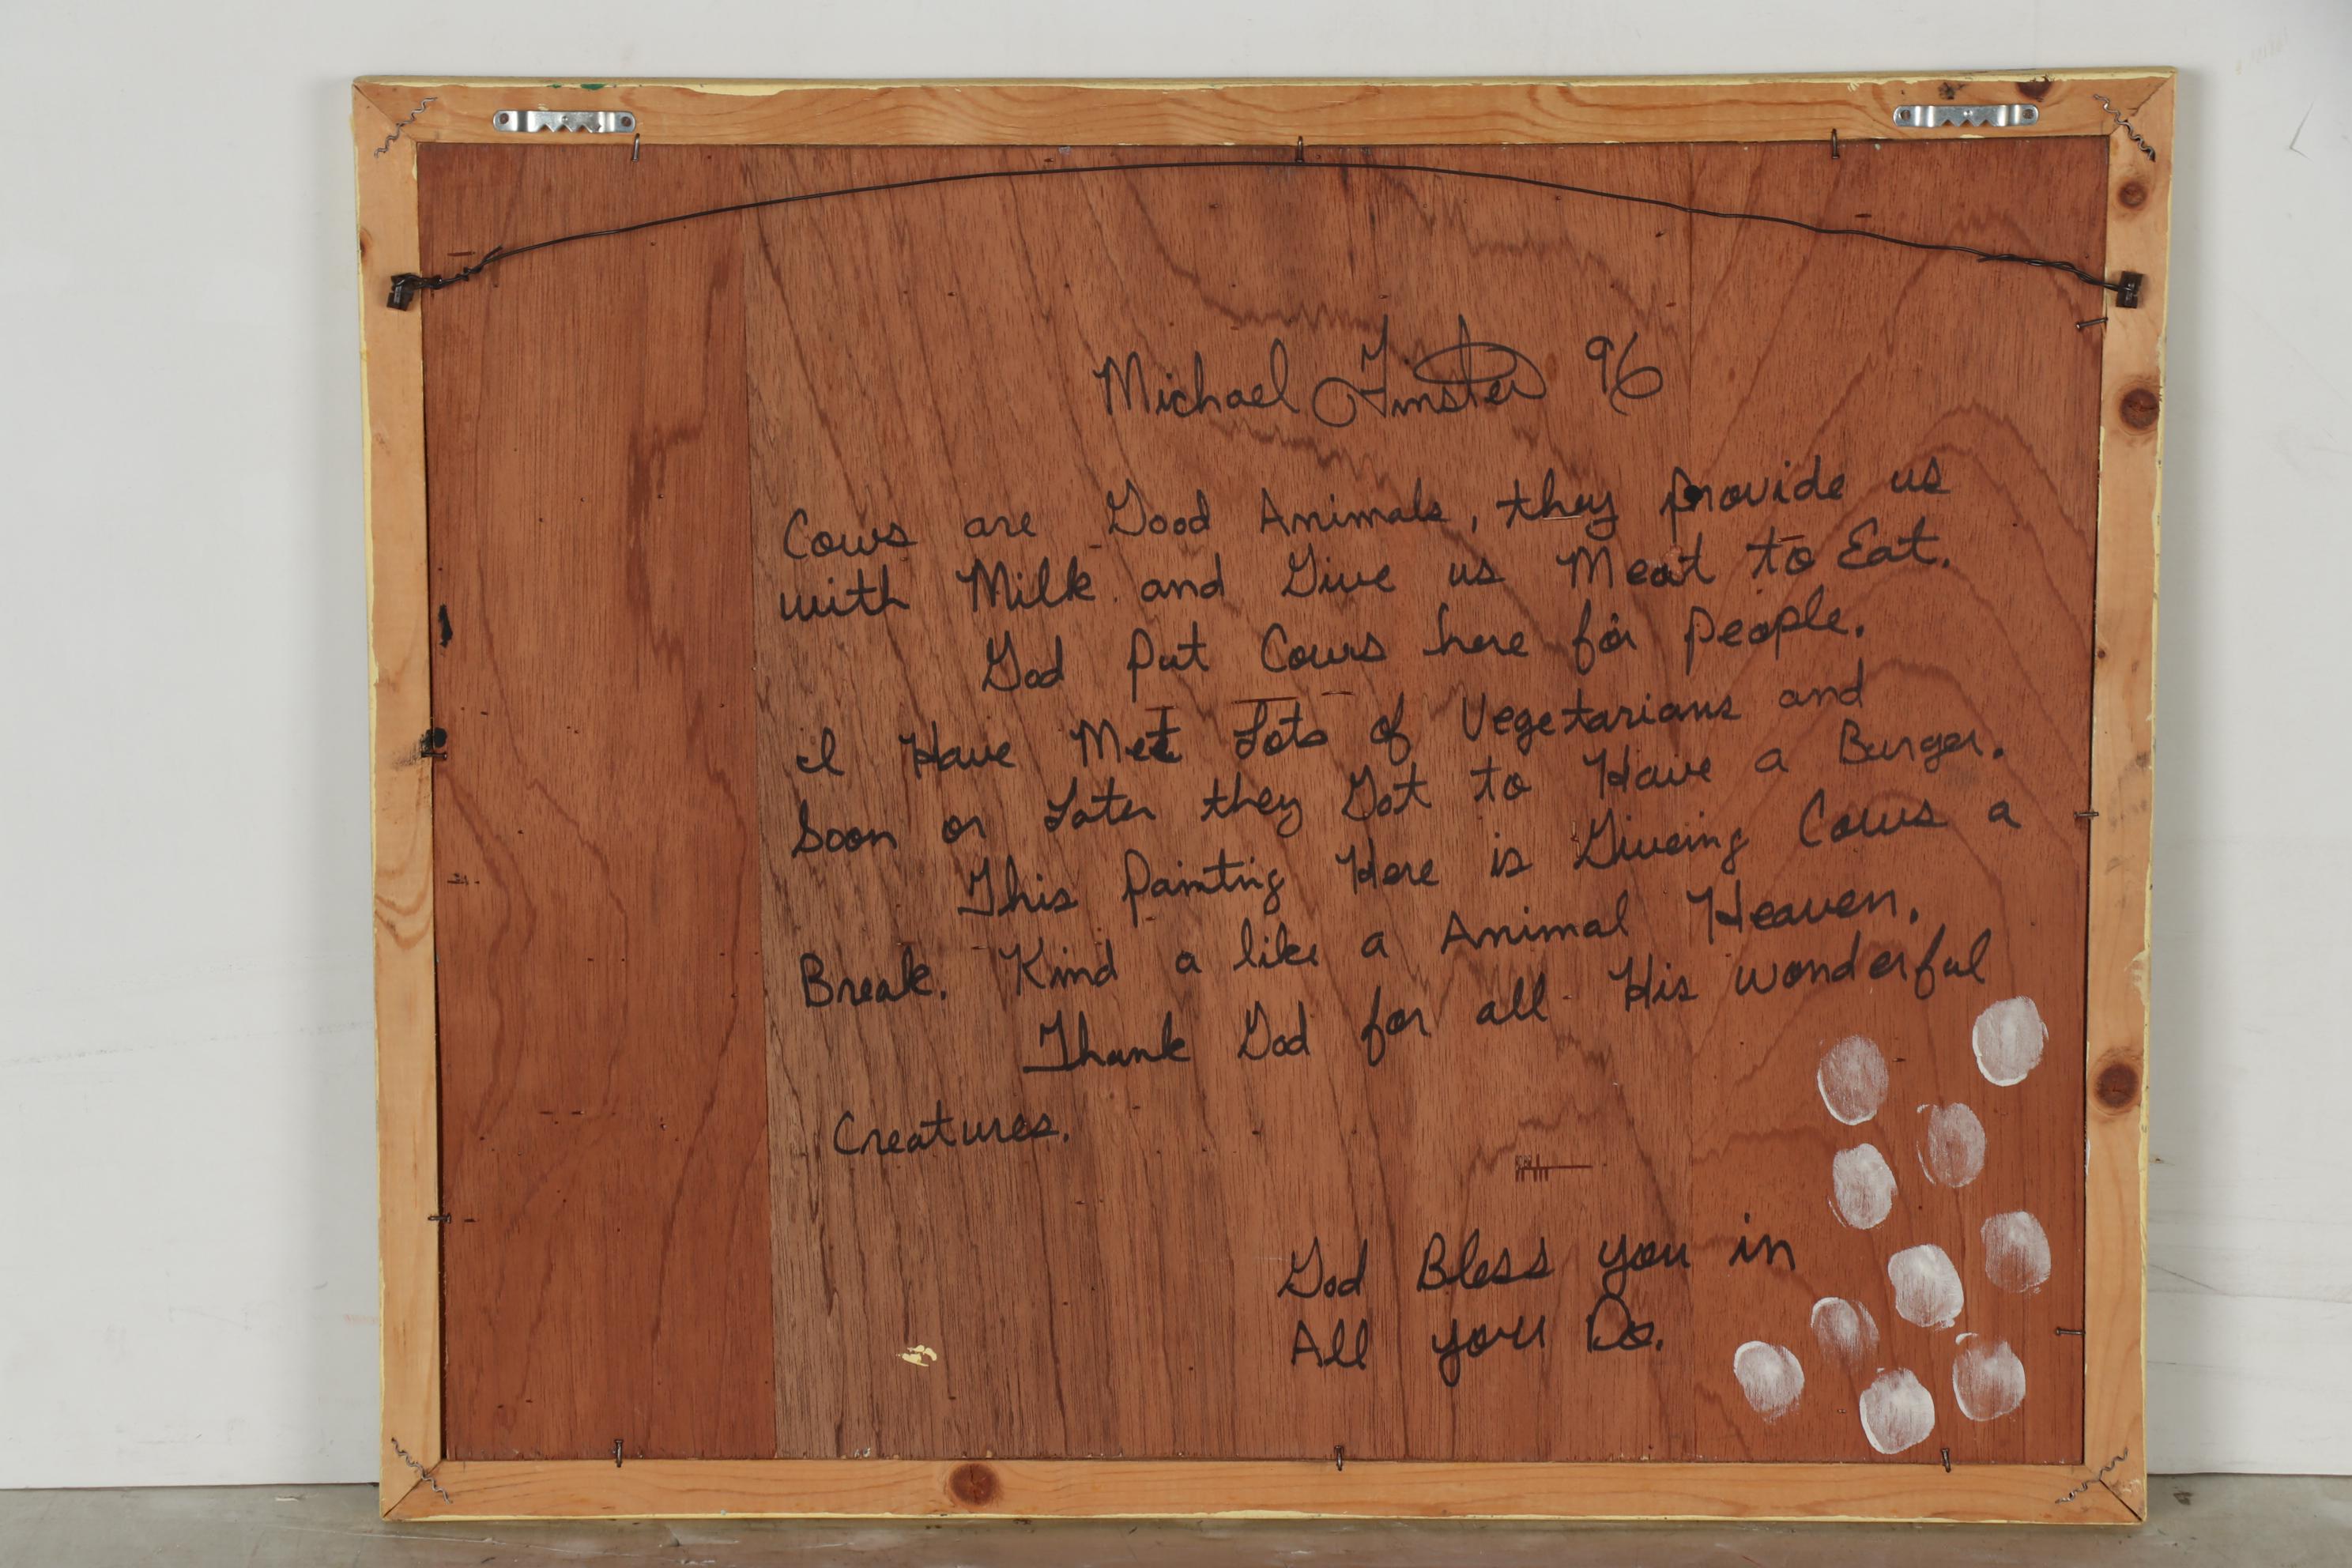 Michael Finster 96
Cows are Good Animals, they provide us
with Milk and Give us Meat to Eat.
God put Cows here for people.
I Have Met Lots of Vegetarians and
Soon or Later they Got to Have a Burger.
This Painting Here is Giveing Cows a
Break. Kind a like a Animal Heaven.
Thank God for all His wonderful
Creatures.
God Bless you in
All you Do.